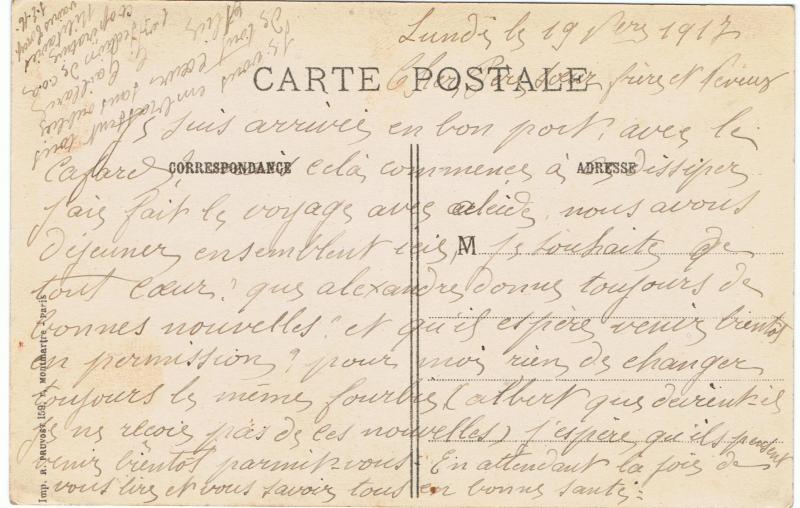 Lundi le 19 9bre 1917
CARTE POSTALE
Cher Père, sœur, frère et neveux
Je suis arrivée en bon port. avec le
Cafard, celà commence à se dissiper
CORRESPONDANCE
ADRESSE
J'ais fait le voyage avec aleide, nous avous
dejeuner ensemblent ici, Je souhaite de
M
tout cœur? que alexandre donne toujours de
bonnes nouvelles? et qu'il espère venir bientot
en permission? pour moi rien de changer
toujours le même fourbi, (albert que devient-il
je ne reçoie pas de ces nouvelles) j'espère qu'ils pensent
venir bientot parmit vous. En attendant la joie de
vous lire et vous savoir tous en bonne santé;
Je vous embrassent tous
de tout cœur sans oublier
Imp. R. PRUVOST 159, r. Montmartre - Paris